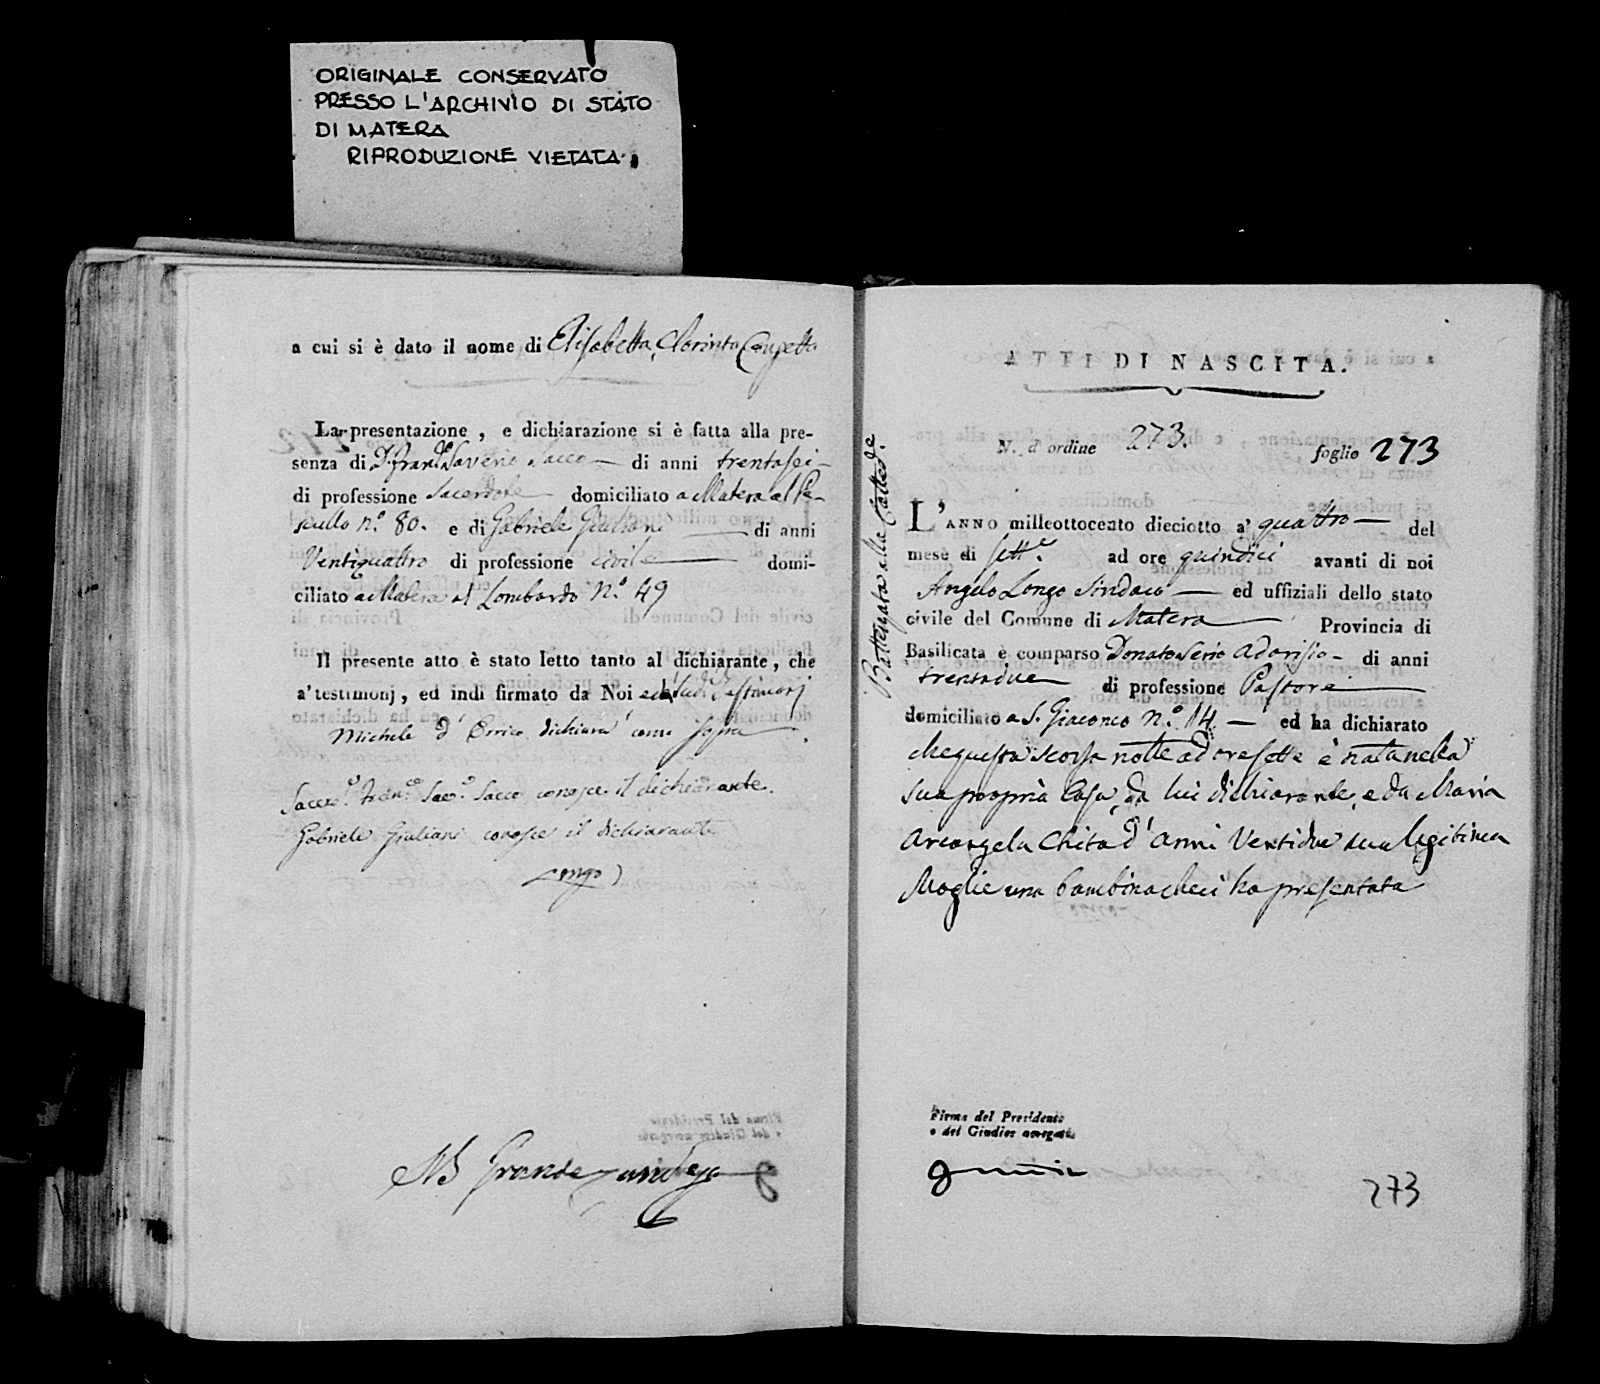 ORIGINALE CONSERVATO
PRESSO L'ARCHIVIO DI STATO
DI MATERA
RIPRODUZIONE VIETATA
a cui si è dato il nome di Elisabetta, Clorinta
La presentazione, e dichiarazione si è fatta alla pre-
senza di D. Fran.co Saverio Sacco — di anni trentasei —
di professione Sacerdote — domiciliato a Matera al Pe-
scullo n.º 80. e di Gabriele Giuliani — di anni
Ventiquattro di professione civile — domi-
ciliato a Matera al Lombardo N.º 49
Il presente atto è stato letto tanto al dichiarante, che
a' testimonj, ed indi firmato da Noi testimonj
Michele d'Errico, dichiara come sopra
Sacer. Fran.co Sav.º Sacco conosce il dichiarante.
Gabriele Giuliani conosce il dichiarante
Longo
Grande
ATTI DI NASCITA.
N. d'ordine 273. foglio 273
Battezzata alla Catted.
L'ANNO milleottocento dieciotto a' quattro — del
mese di sett.e ad ore quindici avanti di noi
Angelo Longo Sindaco — ed uffiziali dello stato
civile del Comune di Matera — Provincia di
Basilicata è comparso Donato Serio Adorisio — di anni
trentadue di professione Pastore —
domiciliato a S. Giacomo n.º 14. — ed ha dichiarato
che questa scorsa notte ad ore sette è nata nella
sua propria Casa, da lui dichiarante, e da Maria
Arcangela Chita d'anni Ventidue sua legitima
Moglie una bambina che ci ha presentata
Firma del Presidente
o del Giudice
273